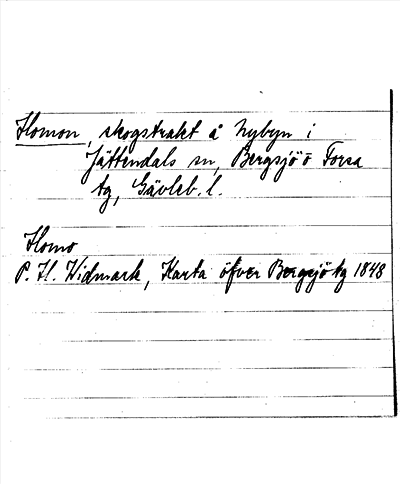 Homon, skogstrakt å Nybyn i
Jättendals sn, Bergsjö o Forsa
tg, Gävleb. l.
Homo
P. H. Widmark, Karta öfver Bergsjö tg 1848